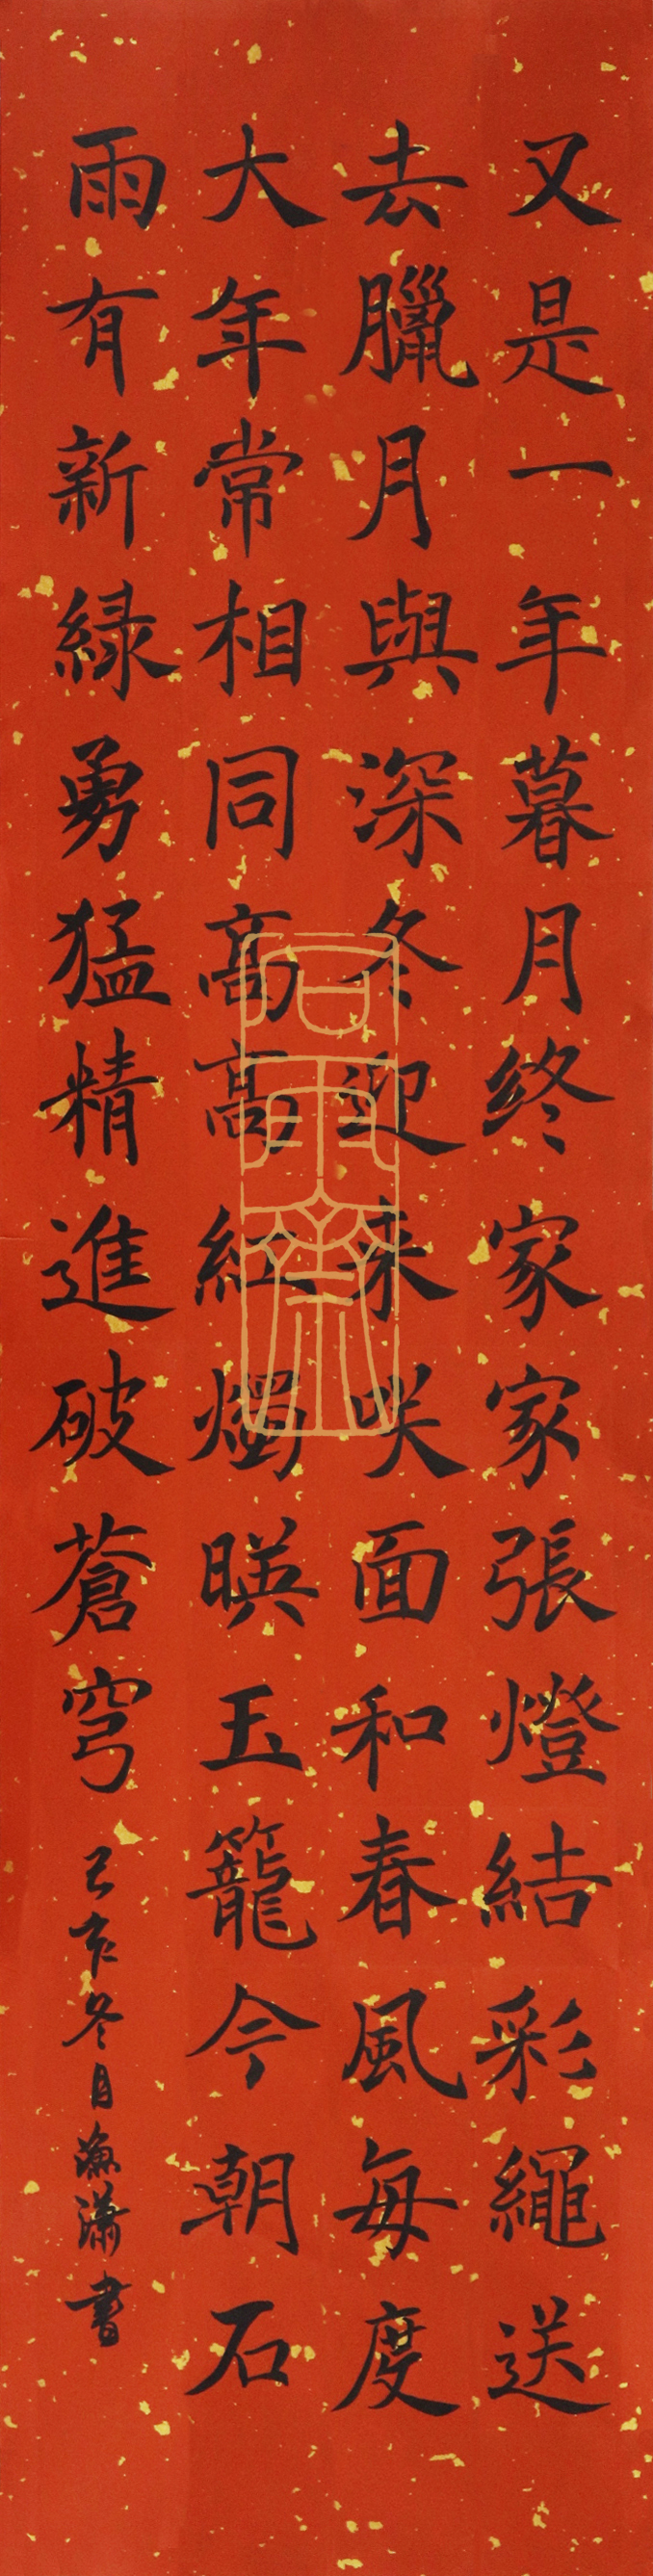 又是一年暮月终家家張燈結彩繩送
去臘月與深冬迎来咲面和春風每度
大年常相同高高紅燭暎玉籠今朝石
雨有新緑勇猛精進破蒼穹
己亥冬月瀟書
石雨齋